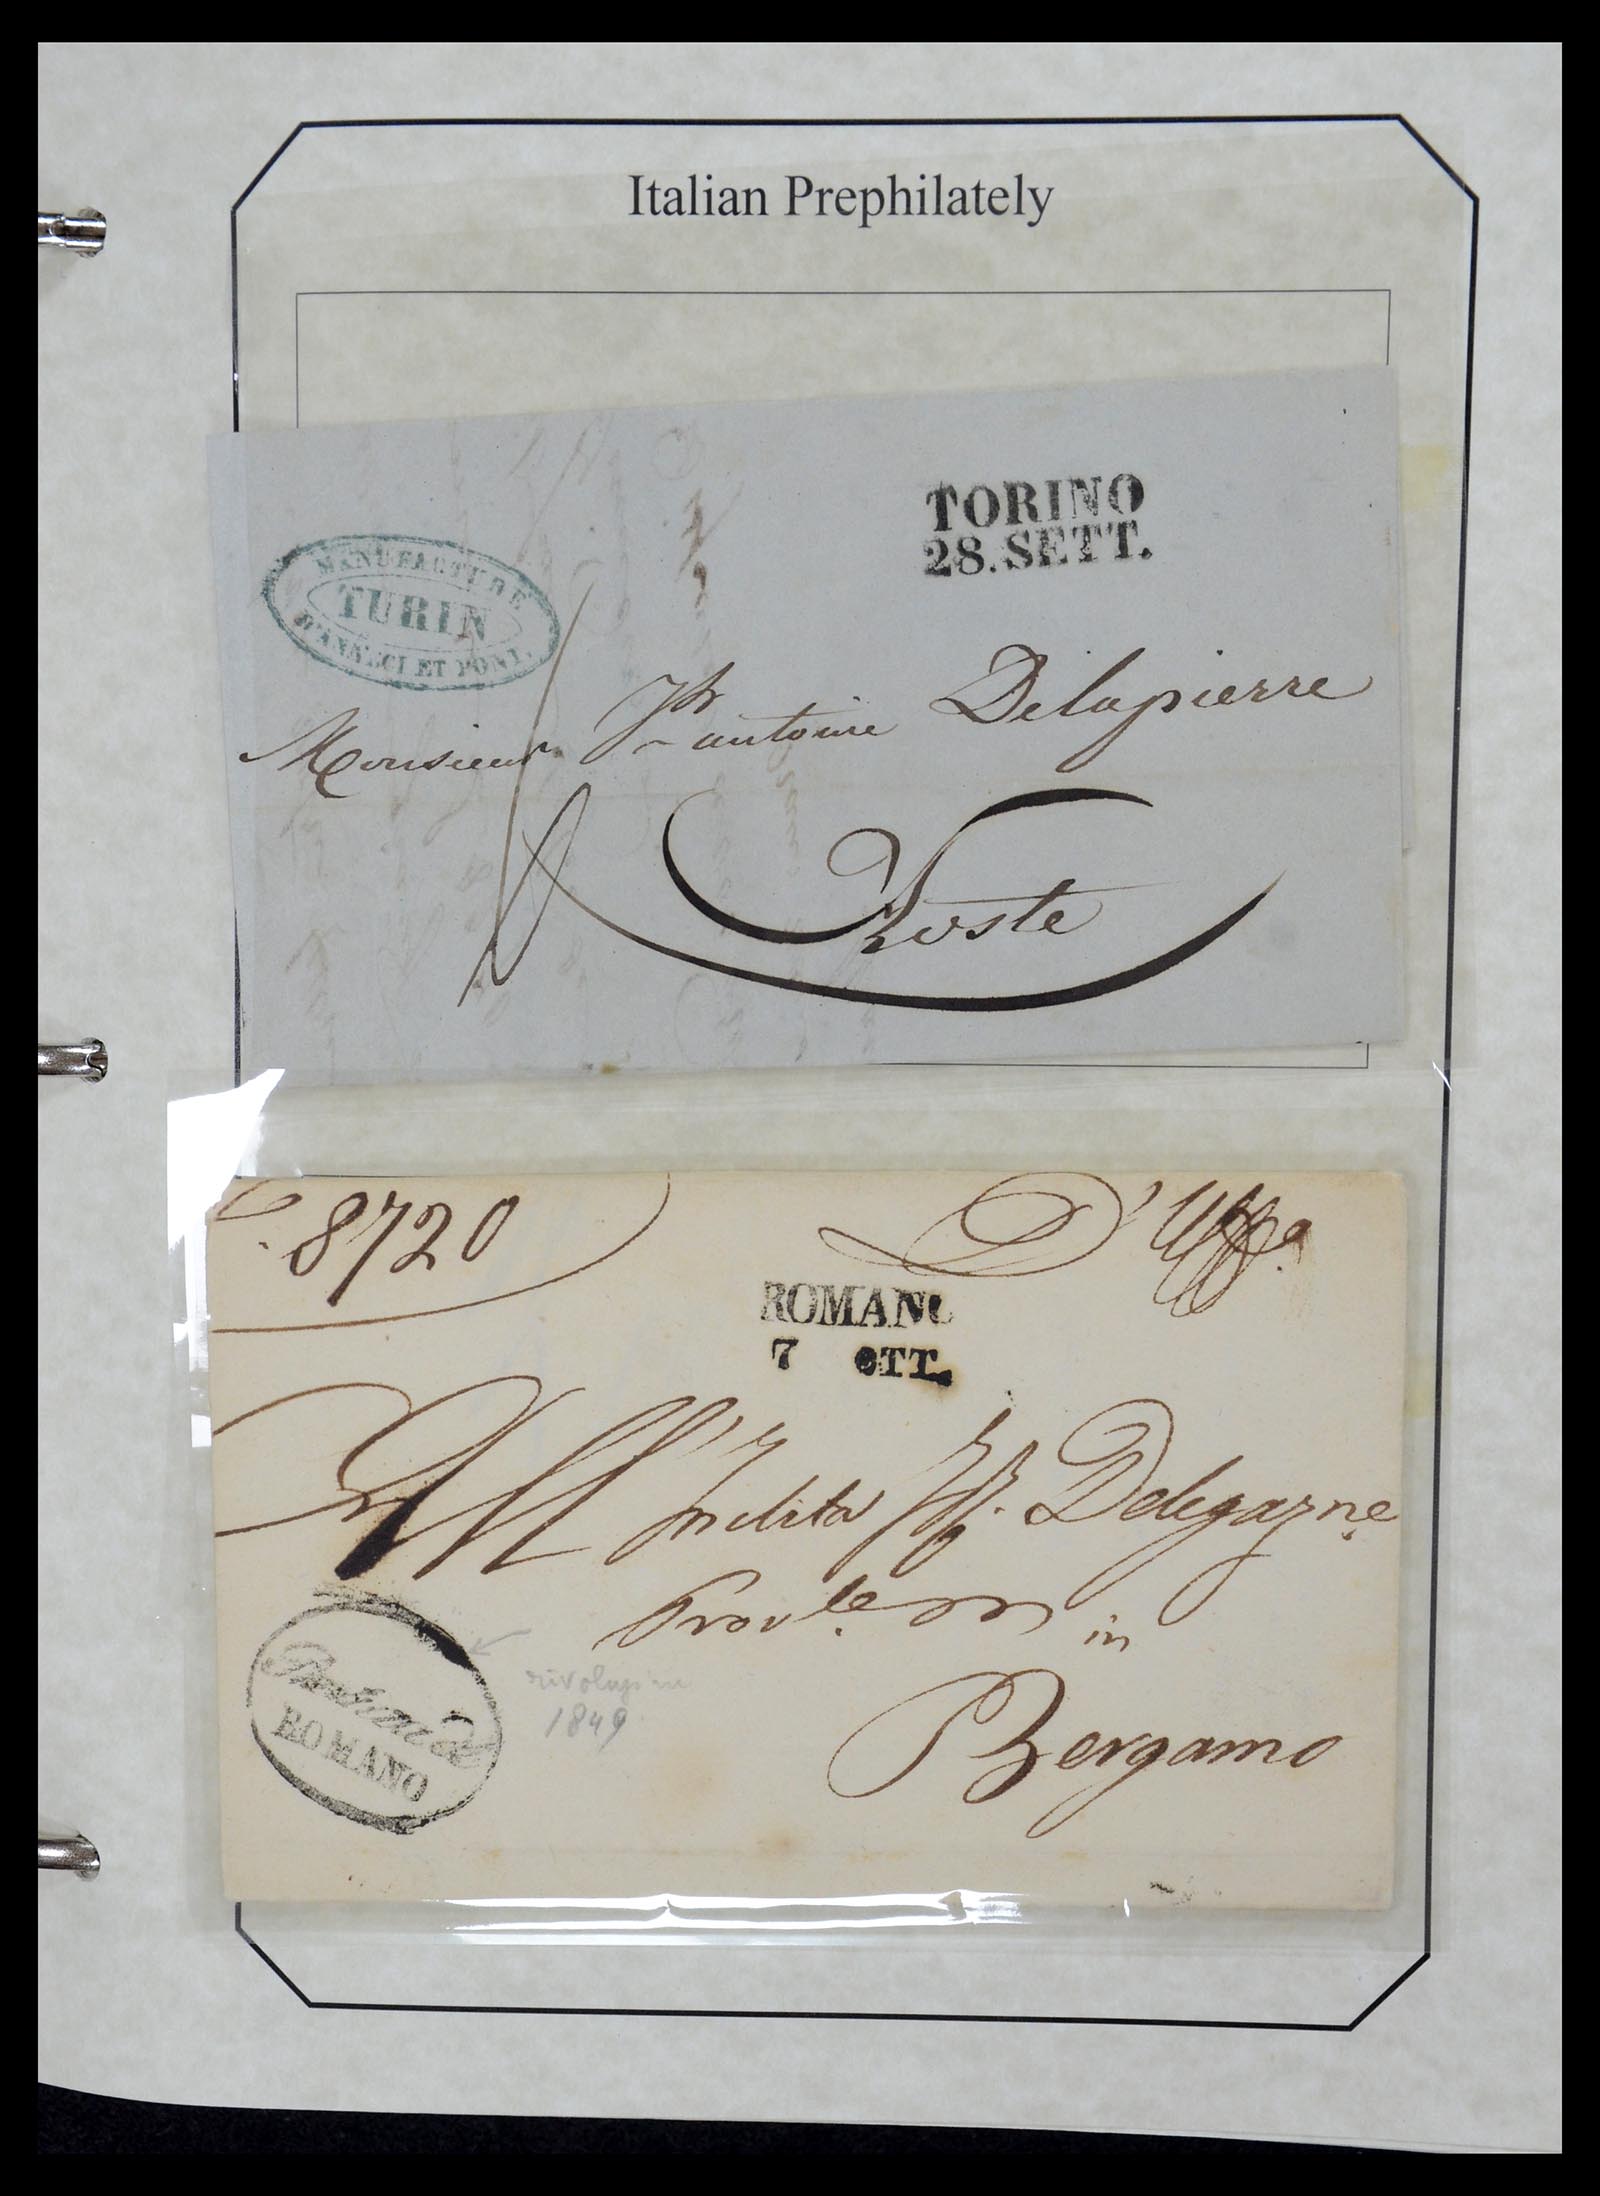 Italian Prephilately
TORINO
28.SETT.
MANUFACTURE
TURIN
D'ANNECI ET PONT.
Monsieur Jh antoine Delapierre
Aoste
8720
D'Uffo.
ROMANO
7 OTT.
All' Inclita Delegazne.
Provle. in
Bergamo
ROMANO
1849